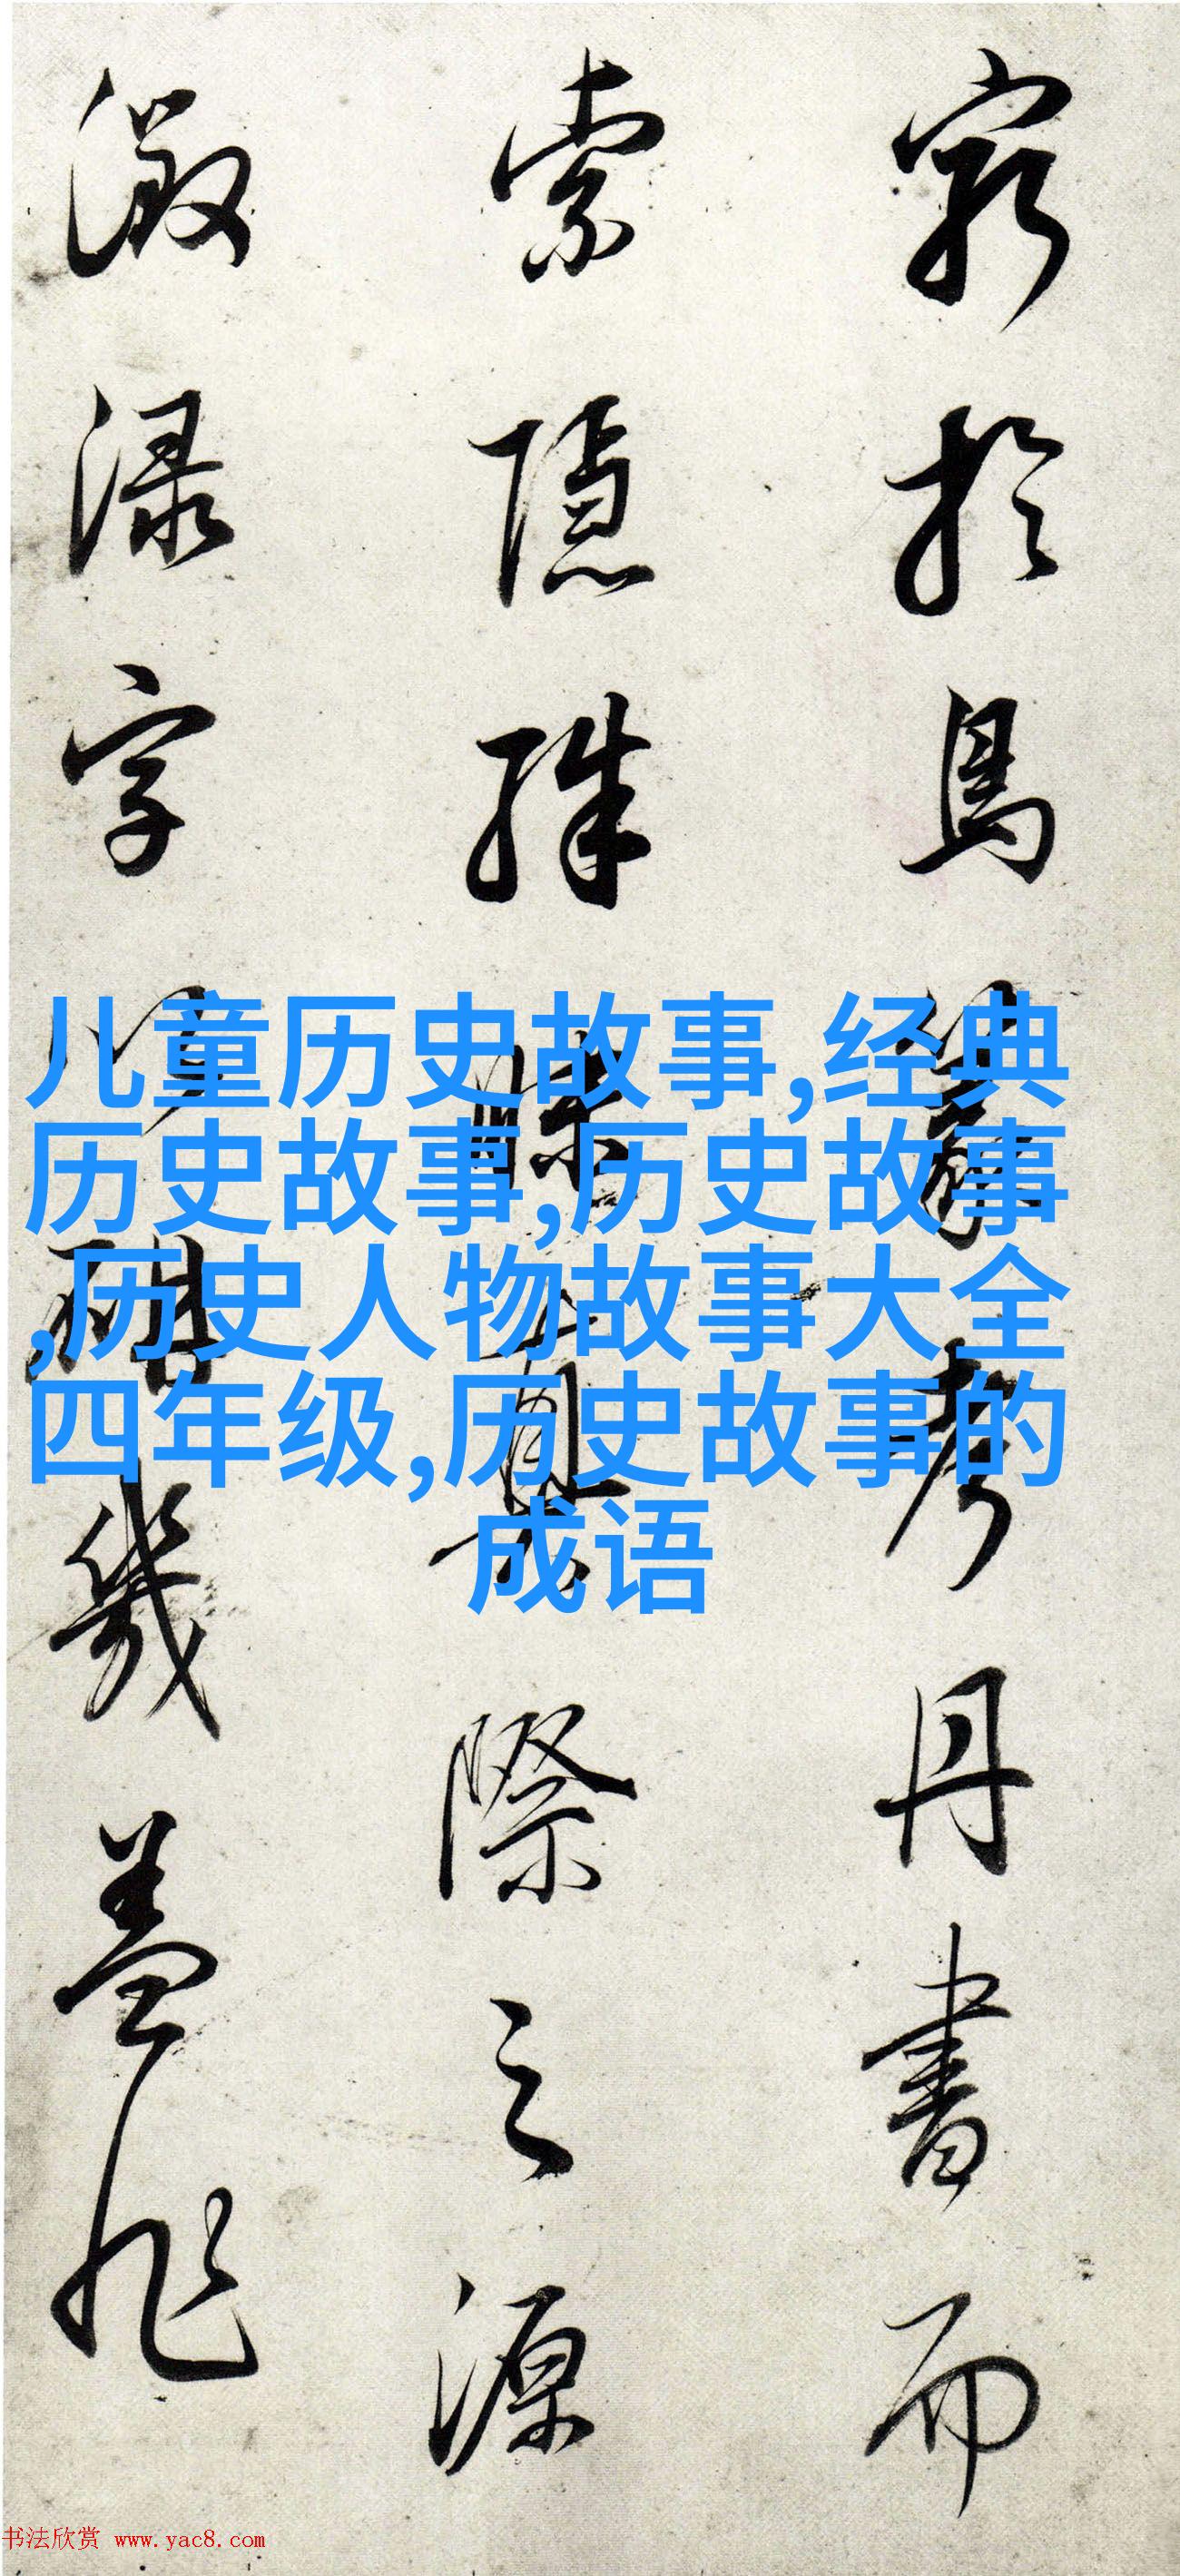 窮於鳥篆考丹書而
索隱殊昧真際之源
渌字以研幾盖非
儿童历史故事,经典
历史故事,历史故事
,历史人物故事大全
四年级,历史故事的
成语
书法欣赏 www.yac8.com